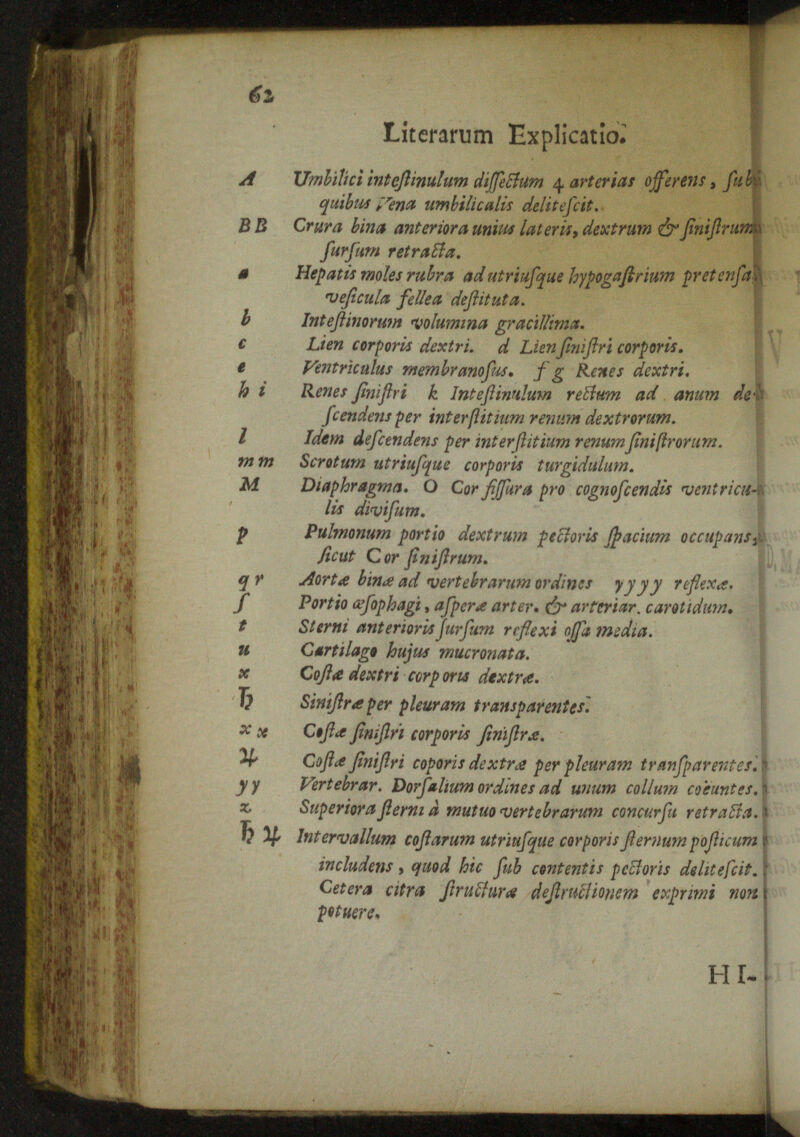 62
Literarum Explicatio.
A Umbilici inteſtinulum diſſectum 4 arterias offerens, ſub
quibus Vena umbilicalis deliteſcit.
BB Crura bina anteriora unius lateris, dextrum & ſiniſtrum
ſurſum retracta.
a Hepatis moles rubra ad utriuſque hypogaſtrium pretenſa
veſicula fellea deſtituta.
b Inteſtinorum volumina gracillima.
c Lien corporis dextri. d Lien ſiniſtri corporis.
e Ventriculus membranoſus. f g Renes dextri.
h i Renes ſiniſtri k Inteſtinulum rectum ad anum de-
ſcendens per interſtitium renum dextrorum.
l Idem deſcendens per interſtitium renum ſiniſtrorum.
m m Scrotum utriuſque corporis turgidulum.
M Diaphragma. O Cor fiſſura pro cognoſcendis ventricu-
lis diviſum.
p Pulmonum portio dextrum pectoris ſpacium occupans,
ſicut Cor ſiniſtrum.
q r Aortæ binæ ad vertebrarum ordines y y y y reflexæ.
ſ Portio œſophagi, aſperæ arter. & arteriar. carotidum.
t Sterni anterioris ſurſum reflexi oſſa media.
u Cartilago hujus mucronata.
x Coſtæ dextri corporis dextræ.
♄ Siniſtræ per pleuram transparentes.
x x Coſtæ ſiniſtri corporis ſiniſtræ.
♃ Coſtæ ſiniſtri coporis dextræ per pleuram tranſparentes.
y y Vertebrar. Dorſalium ordines ad unum collum coëuntes.
z Superiora ſterni à mutuo vertebrarum concurſu retracta.
♄ ♃ Intervallum coſtarum utriuſque corporis ſternum poſticum
includens, quod hic ſub contentis pectoris deliteſcit.
Cetera citra ſtructuræ deſtructionem exprimi non
potuere.
HI-